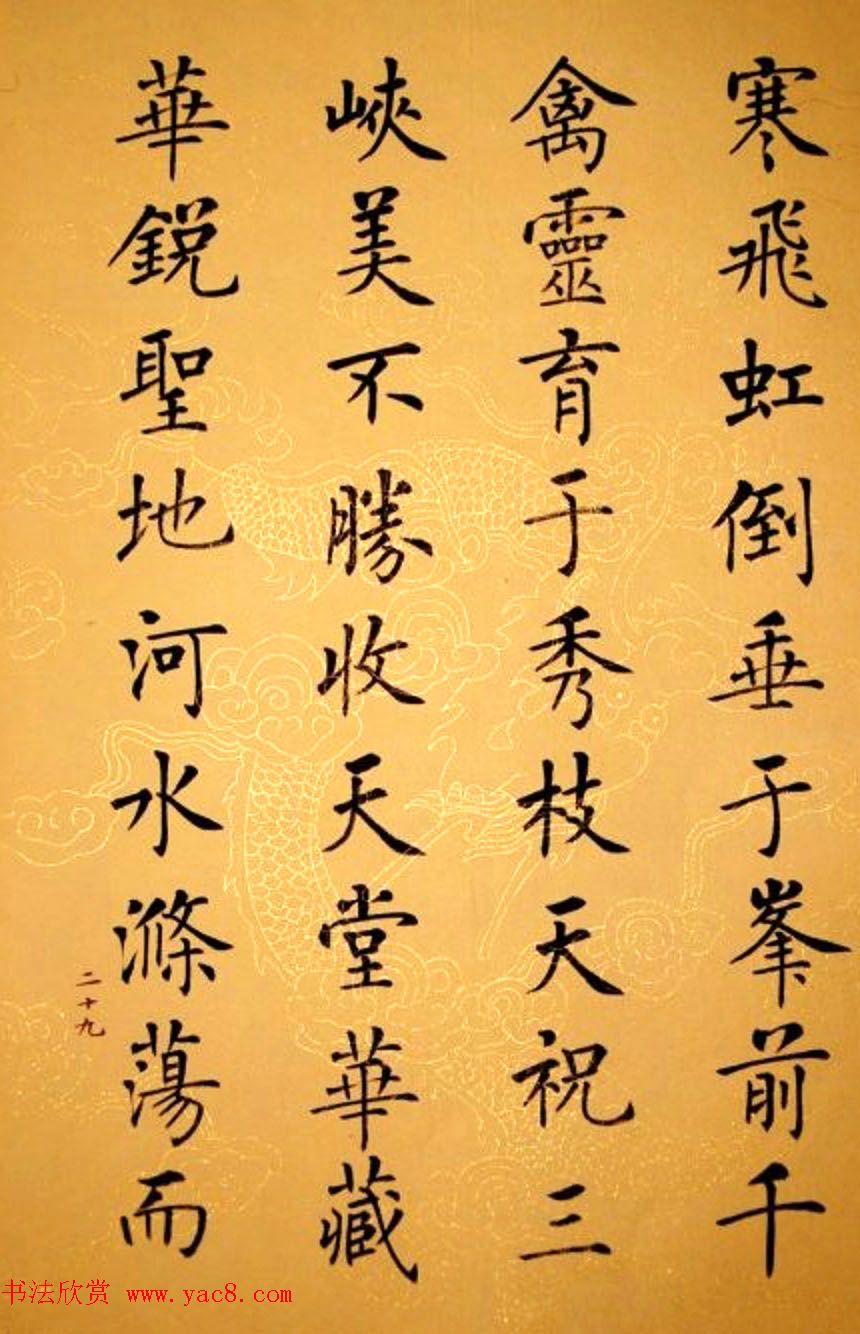 寒飛虹倒垂于峯前千
禽靈育于秀枝天祝三
峽美不勝收天堂華藏
華鋭聖地河水滌蕩而
二十九
书法欣赏 www.yac8.com